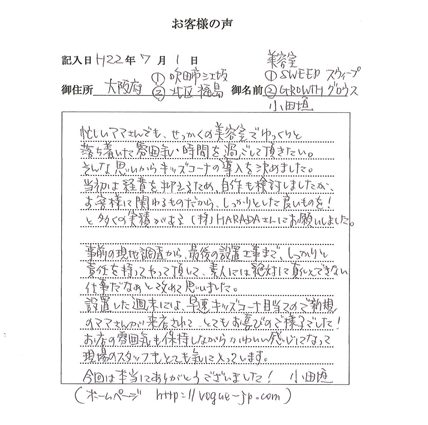 お客様の声
記入日 H22年 7月 1日
美容室
御住所 大阪府 ①吹田市江坂 ②北区 福島
御名前 ①SWEEP スウィープ ②GROWTH グロウス
小田垣
忙しいママさんでも、せっかくの美容室でゆっくりと
落ち着いた雰囲気い時間を過ごして頂きたい。
そんな思いからキッズコーナの導入を決めました。
当初は経費を抑えるため、自作も検討しましたが、
お客様に関わるものだから、しっかりとした良いものを!
と多くの実績がある(株)HARADAさんにお願いしました。
事前の現地調査から、最後の設置工事まで、しっかりと
責任を持ってやって頂いて、素人には絶対に真似できない
仕事だなあと改めて思いました。
設置した週末には、早速キッズコーナ目当てのご新規
のママさんがご来店されて、とてもお喜びのご様子でした!
お店の雰囲気も保持しながらかわいい感じになって
現場のスタッフもとても気に入ってします。
今回は本当にありがとうございました! 小田垣
(ホームページ http://vogue-jp.com)